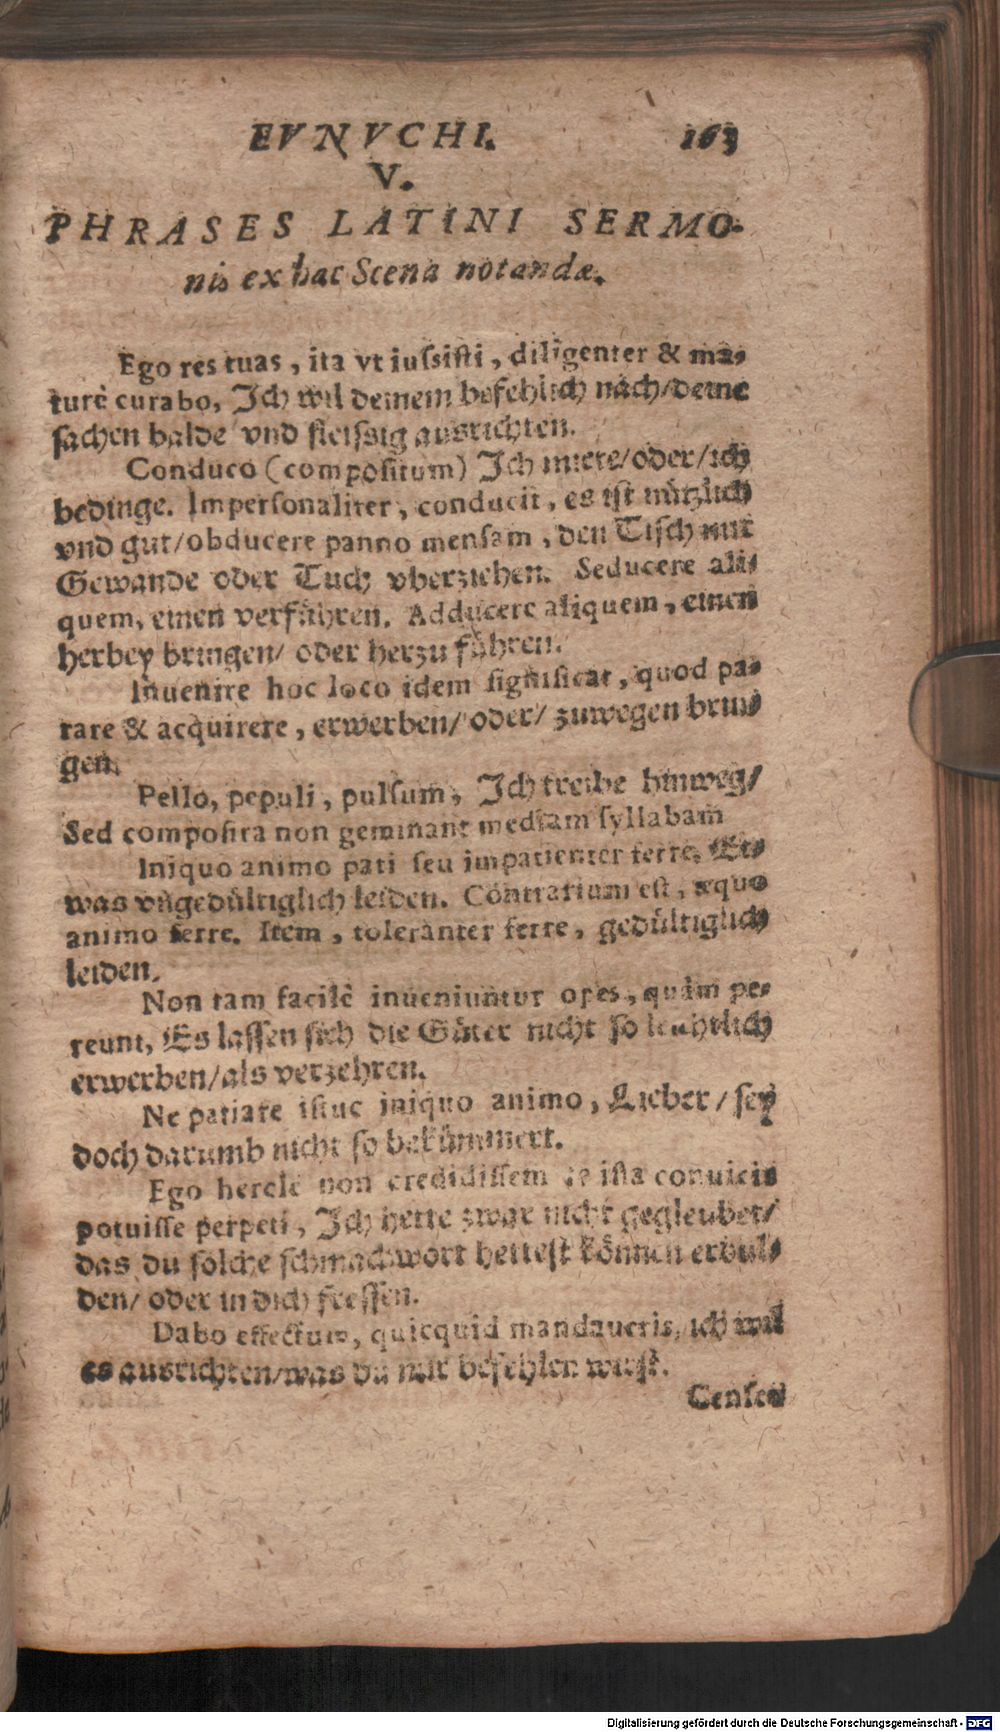 EVNVCHI. 163
V.
PHRASES LATINI SERMO-
nis ex hac Scena notandæ.
Ego res tuas, ita vt iussisti, diligenter & ma-
turè curabo, Ich wil deinem befehlich nach/deine
sachen balde vnd fleissig ausrichten.
Conduco (compositum) Ich miete/oder/ich
bedinge. Impersonaliter, conducit, es ist nützlich
vnd gut/obducere panno mensam, den Tisch mit
Gewande oder Tuch vberziehen. Seducere ali-
quem, einen verführen. Adducere aliquem, einen
herbey bringen/ oder herzu führen.
Inuenire hoc loco idem significat, quod pa-
rare & acquirere, erwerben/ oder/ zuwegen brin-
gen.
Pello, pepuli, pulsum, Ich treibe hinweg/
Sed composita non geminant mediam syllabam
Iniquo animo pati seu impatienter ferre, Et-
was vngedültiglich leiden. Contrarium est, æquo
animo ferre. Item, toleranter ferre, gedültiglich
leiden.
Non tam facilè inueniuntur opes, quàm pe-
reunt, Es lassen sich die Güter nicht so leichtlich
erwerben/als verzehren.
Ne patiare istuc iniquo animo, Lieber/ sey
doch darumb nicht so bekümmert.
Ego hercle non credidissem te ista conuicia
potuisse perpeti, Ich hette zwar nicht gegleubet/
das du solche schmachwort hettest können erdul-
den/ oder in dich fressen.
Dabo effectum, quicquid mandaueris, ich wil
es ausrichten/was du mir befehlen wirst.
Censen
Digitalisierung gefördert durch die Deutsche Forschungsgemeinschaft - DFG